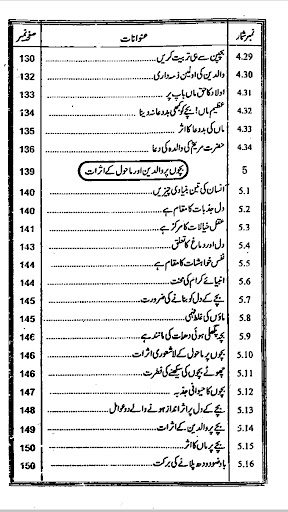 نمبر شمار عنوانات صفحہ نمبر
4.29 بچپن سے ہی تربیت کریں 130
4.30 والدین کی اولین ذمہ داری 132
4.31 اولاد کا حق ماں باپ پر 133
4.32 عظیم ماں! بچے کو کبھی بددعا نہ دینا 134
4.33 ماں کی بددعا کا اثر 135
4.34 حضرت مریمؑ کی والدہ کی دعا 136
5 بچوں پر والدین اور ماحول کے اثرات 139
5.1 انسان کی تین بنیادی چیزیں 140
5.2 دل جذبات کا مقام ہے 140
5.3 عقل خیالات کا مرکز ہے 141
5.4 دل اور دماغ کا تعلق 143
5.5 نفس خواہشات کا مقام ہے 144
5.6 انبیائے کرام کی محنت 144
5.7 بچے کے دل کو بنانے کی ضرورت 145
5.8 ماؤں کی غلط فہمی 145
5.9 بچہ پگھلی ہوئی دھات کی مانند ہے 146
5.10 بچوں پر ماحول کے لاشعوری اثرات 146
5.11 چھوٹے بچوں کی سیکھنے کی فطرت 146
5.12 بچوں کا حیوانی جذبہ 147
5.13 بچے کے دل پر اثر انداز ہونے والے دو عوامل 148
5.14 بچے پر والدین کے اثرات 149
5.15 بچے پر ماں کا اثر 150
5.16 باوضو دودھ پلانے کی برکت 150